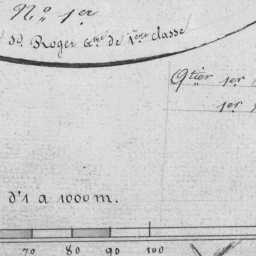 N.º 1er
Sr. Roger Gtre de 1ère classe
Qtier 1er
1er
d'1 a 1000 m.
70 80 90 100